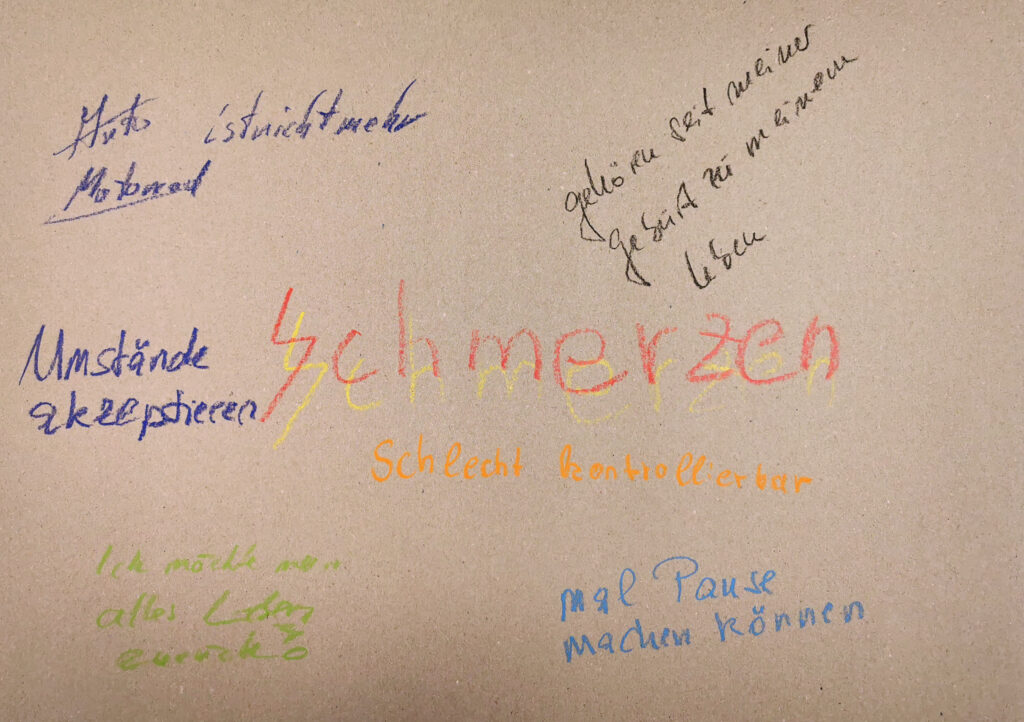 Auto istnichtmehr
Motorrad
gehören seit meiner
geburt zu meinem
leben
Schmerzen
Umstände
akzeptieren
Schlecht kontrollierbar
Ich möchte mein
altes Leben
zurück
mal Pause
machen können